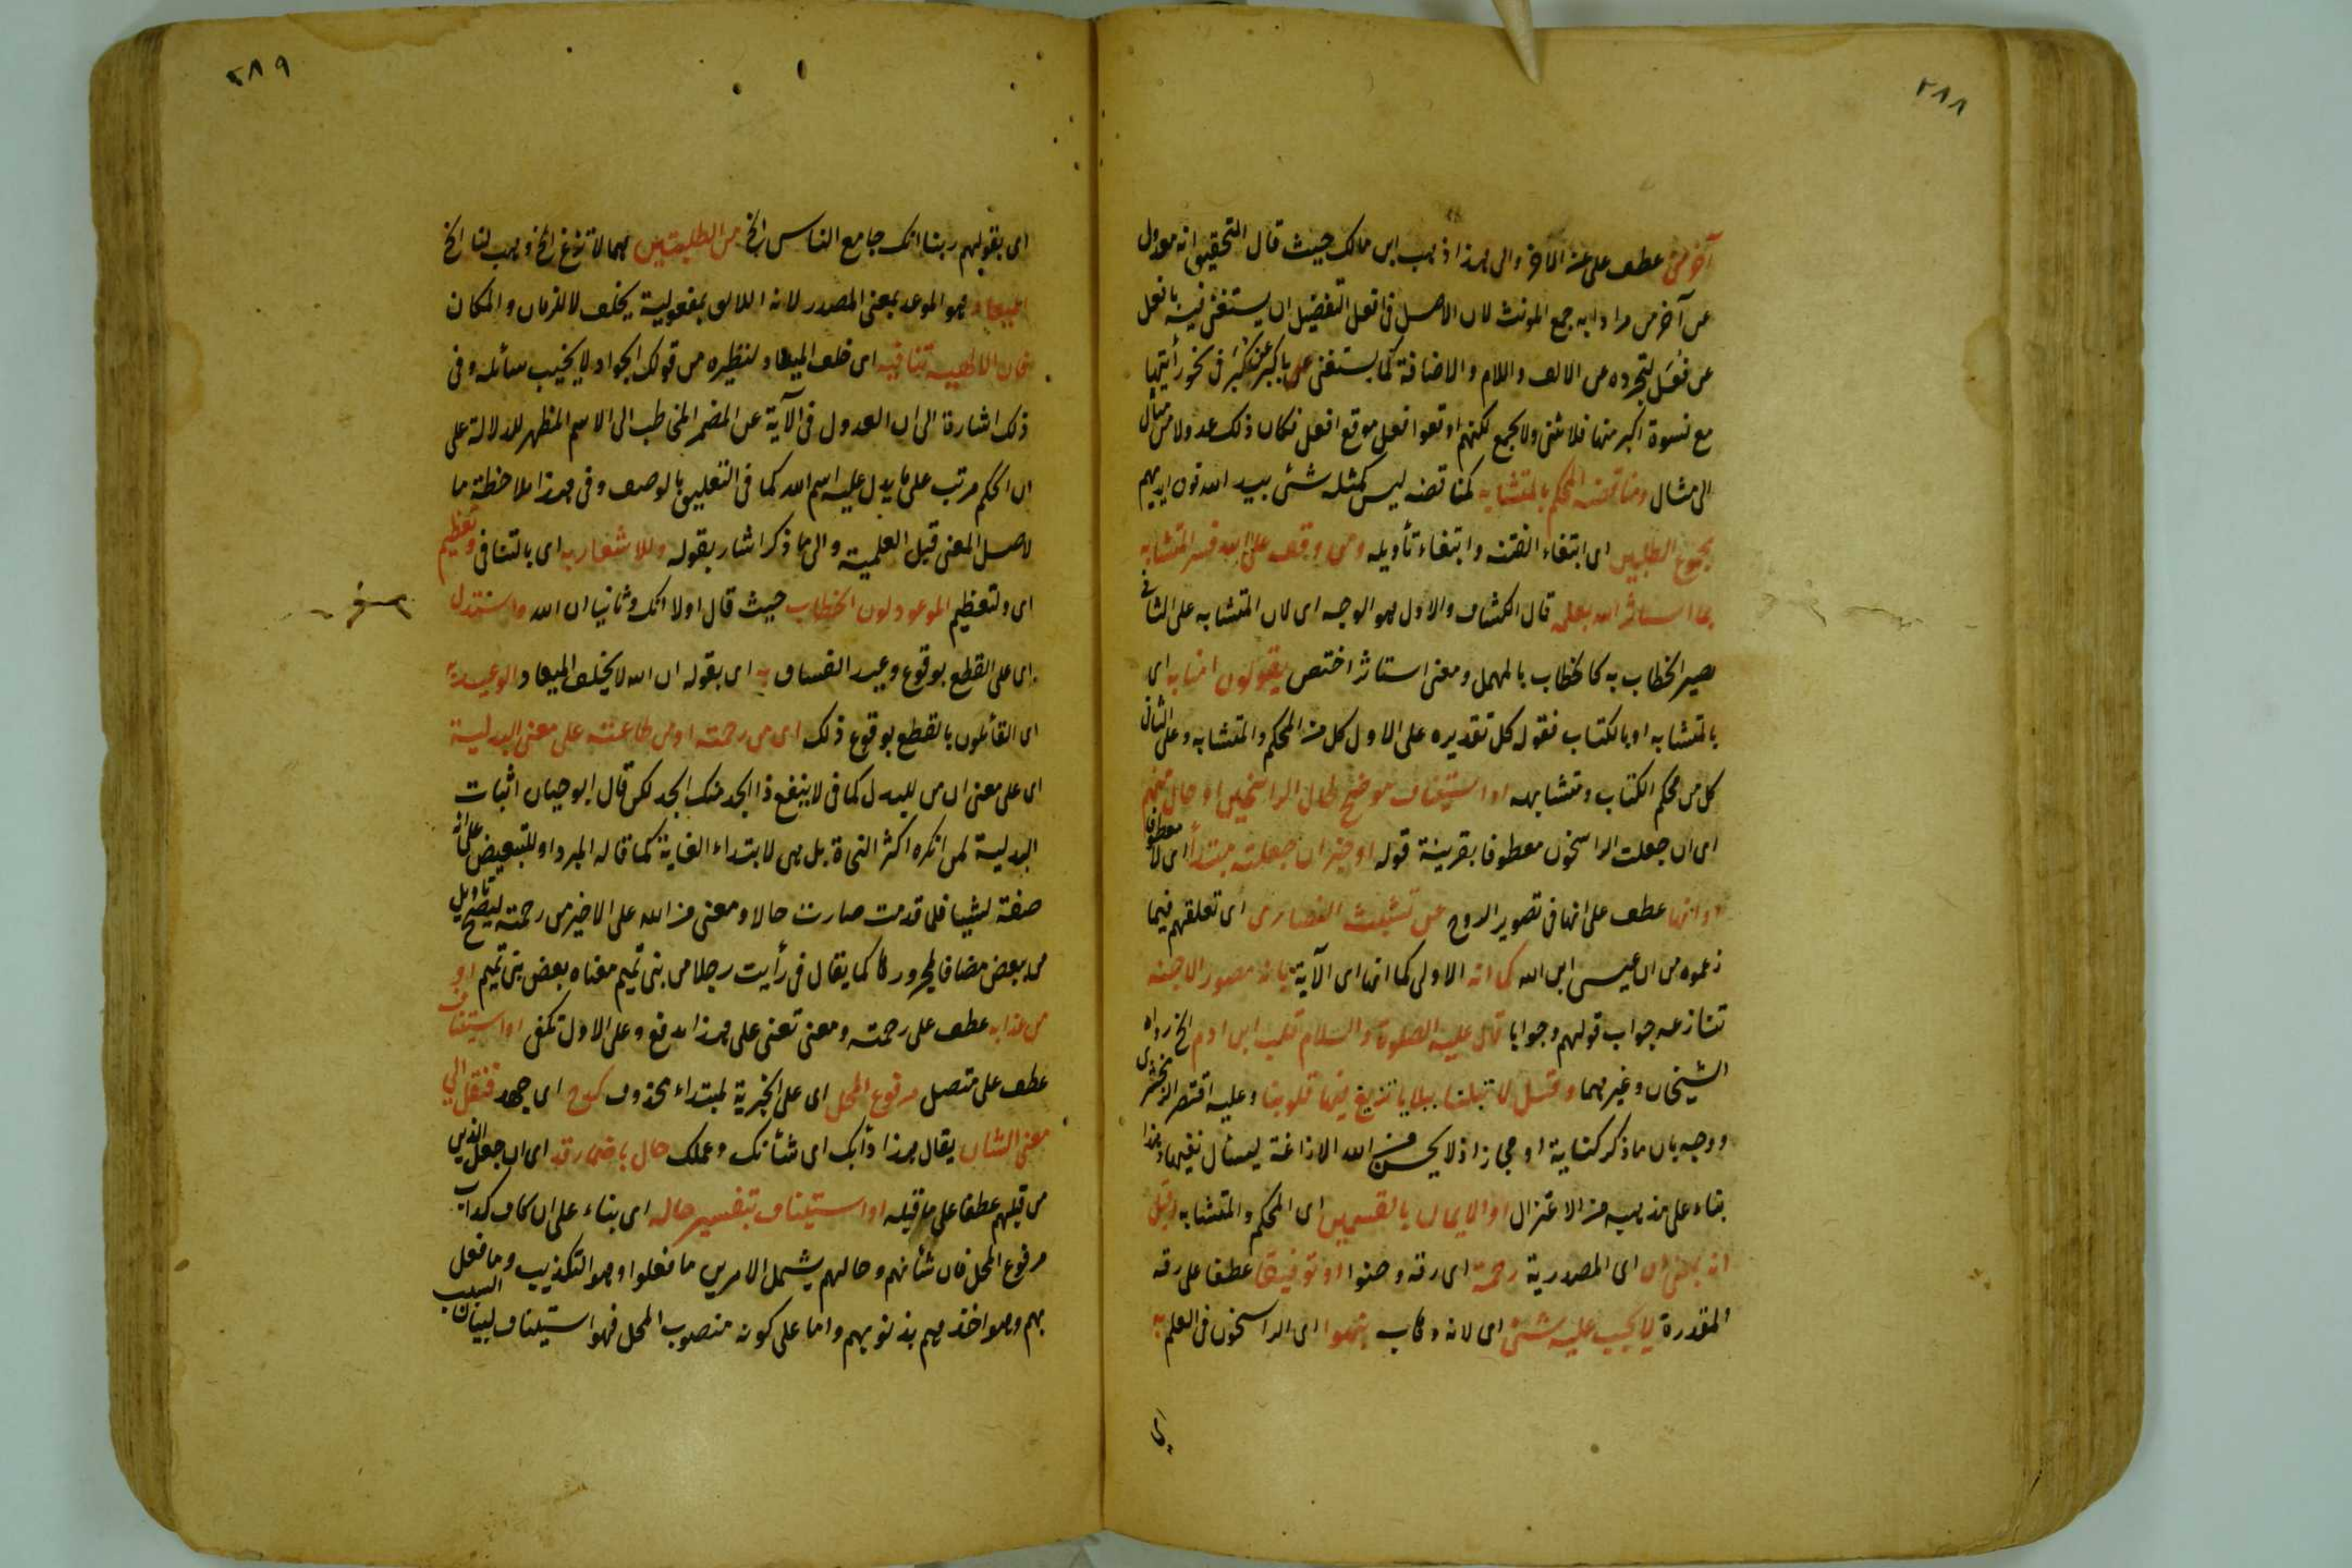 ٢٨٨
آخر من عطف على عن الآخر والى هذا ذهب ابن مالك حيث قال التحقيق انه معدول
عن آخر من مرادا به جمع المونث لان الاصل فى افعل التفضيل ان يستغنى فيه بافعل
عن فعل لتجرده عن الالف واللام والاضافة كما يستغنى باكبر عن كبر فى نحو رأيتها
مع نسوة اكبر منها فلا يثنى ولا يجمع لكنهم اوقعوا فعل موقع افعل فكان ذلك عدولا من مثال
الى مثال ومناقضة المحكم بالمتشابه كمناقضة ليس كمثله شئ بيد الله فوق ايديهم
بمجموع الطلبين اى ابتغاء الفتنة وابتغاء تأويله ومن وقف على الله فسر المتشابه
بما استاثر الله بعلمه قال الكشاف والاول هو الوجه اى لان المتشابه على الثانى
يصير الخطاب به كالخطاب بالمهمل ومعنى استاثر اختص يقولون امنا به اى
بالمتشابه او بالكتاب فقوله كل تقديره على الاول كل من المحكم والمتشابه وعلى الثانى
كل من محكم الكتاب ومتشابهه او استيناف موضح لحال الراسخين او حال منهم
اى ان جعلت الراسخون معطوفا بقرينة قوله او خبر ان جعلته مبتدأ اى لا معطوفا
او انها عطف على انها فى تصوير الروح عن تشبث النصارى اى تعلقهم فيما
زعموه من ان عيسى ابن الله كما انه الاولى كما انها اى الآية بانه مصور الاجنة
تنازعه جواب قولهم وجوابا قال عليه الصلوة والسلام قلب ابن ادم الخ رواه
الشيخان وغيرهما وقيل لا تبلنا ببلايا تزيغ فيها قلوبنا وعليه اقتصر الزمخشرى
ووجه بان ما ذكر كناية او مجاز اذ لا يحسن من الله الازاغة ليسأل نفيها وهذا
بناء على مذهبه من الاعتزال او الايمان بالقسمين اى المحكم والمتشابه وقيل
انه بمعنى ان اى المصدرية رحمة اى رقة وحنوا او توفيقا عطف على رقة
المقدرة لا يجب عليه شئ اى لانه وهاب نبهوا اى الراسخون فى العلم به
اى
٢٨٩
اى بقولهم ربنا انك جامع الناس الخ من الطلبتين هما لا تزغ الخ وهب لنا الخ
الميعاد هو الموعد بمعنى المصدر لانه اللائق بمفعولية يخلف لا للزمان والمكان
فان الالهية تنافيه اى خلف الميعاد ونظيره من قولك الجواد لا يخيب سائله وفى
ذلك اشارة الى ان العدول فى الآية عن المضمر المخاطب الى الاسم المظهر للدلالة على
ان الحكم مرتب على ما يدل عليه اسم الله كما فى التعليق بالوصف وفى هذا ملاحظة ما
لاصل المعنى قبل العلمية والى ما ذكر اشار بقوله وللاشعار به اى بالتنافى وتعظيم
اى ولتعظيم الموعود لون الخطاب حيث قال اولا انك وثانيا ان الله واستدل
اى على القطع بوقوع وعيد الفساق به اى بقوله ان الله لا يخلف الميعاد الوعيدية
اى القائلون بالقطع بوقوع ذلك اى من رحمته او من طاعته على معنى البدلية
اى على معنى ان من للبدل كما فى لا ينفع ذا الجد منك الجد لكن قال ابو حيان اثبات
البدلية لمن انكره اكثر النحاة بل هى لابتداء الغاية كما قاله المبرد او للتبعيض على انه
صفة لشيئا فلما قدمت صارت حالا ومعنى من الله على الاخير من رحمته ليصح تأويل
من ببعض مضافا لمجرورها كما يقال فى رأيت رجلا من بنى تميم معناه بعض بنى تميم او
من عذابه عطف على رحمته ومعنى تغنى على هذا تدفع وعلى الاول تكفى او استيناف
عطف على متصل مرفوع المحل اى على الخبرية لمبتداء محذوف كدح اى جهد فنقل الى
معنى الشان يقال هذا دأبك اى شأنك وعملك حال باضمار قد اى ان جعل الذين
من قبلهم عطفا على ما قبله او استيناف بتفسير حاله اى بناء على ان كاف كدأب
مرفوع المحل فان شأنهم وحالهم يشمل الامرين ما فعلوا وهو التكذيب وما فعل
بهم وهو اخذهم بذنوبهم واما على كونه منصوب المحل فهو استيناف لبيان السبب